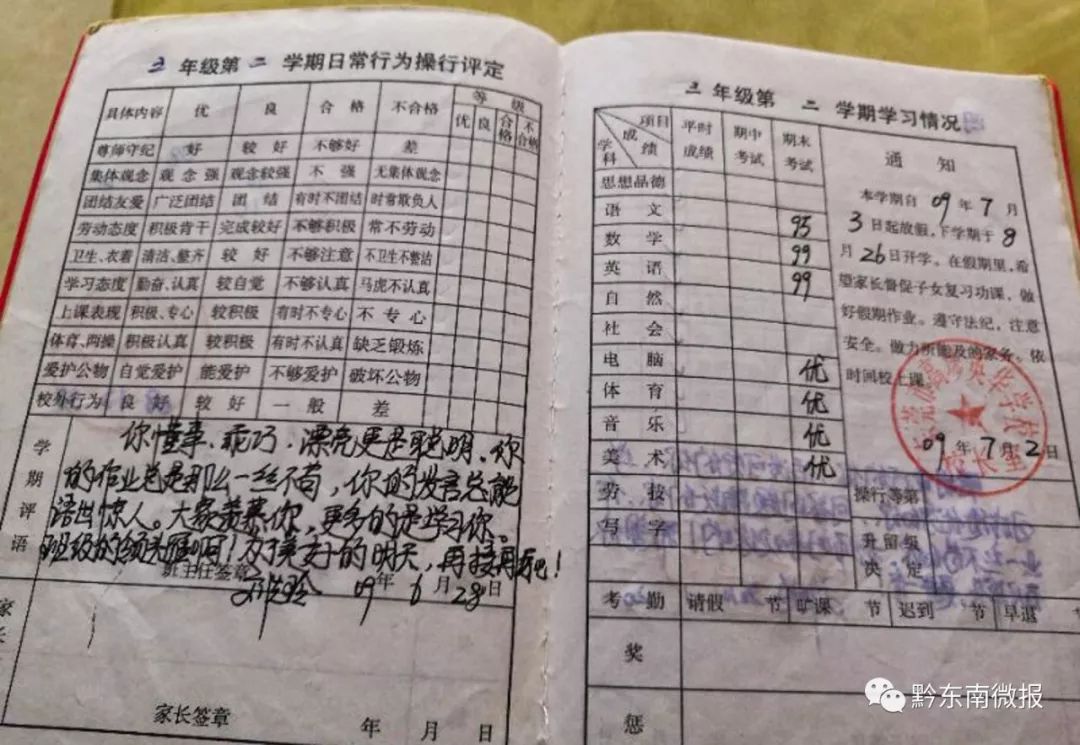 三 年级第 二 学期日常行为操行评定
具体内容 优 良 合格 不合格 等级
优 良 合格 不合格
尊师守纪 好 较好 不够好 差
集体观念 观念强 观念较强 不强 无集体观念
团结友爱 广泛团结 团结 有时不团结 时常欺负人
劳动态度 积极肯干 完成较好 不够积极 常不劳动
卫生、衣着 清洁、整齐 较好 不够注意 不卫生不整洁
学习态度 勤奋、认真 较自觉 不够认真 马虎不认真
上课表现 积极、专心 较积极 有时不专心 不专心
体育、两操 积极认真 较积极 有时不认真 缺乏锻炼
爱护公物 自觉爱护 能爱护 不够爱护 破坏公物
校外行为 良好 较好 一般 差
学期评语
你懂事、乖巧、漂亮更是聪明、你
的作业总是那么一丝不苟，你的发言总能
语出惊人。大家羡慕你，更多的是学习你。
班级的领头雁啊！为了美好的明天，再接再厉吧！
班主任签章 09年6月28日
家长
家长签章 年 月 日
三 年级第 二 学期学习情况
项目 成绩 学科 平时成绩 期中考试 期末考试
思想品德
语文 95
数学 99
英语 99
自然
社会
电脑 优
体育 优
音乐 优
美术 优
劳技
写字
通知
本学期自 09 年 7 月
3 日起放假，下学期于 8
月 26 日开学。在假期里，希
望家长督促子女复习功课，做
好假期作业。遵守法纪，注意
安全。做力所能及的家务。依
时间校上课。
英华学校
校长室
09 年 7 月 2 日
操行等第
升留级决定
考勤 请假 节 旷课 节 迟到 节 早退 节
奖
惩
黔东南微报